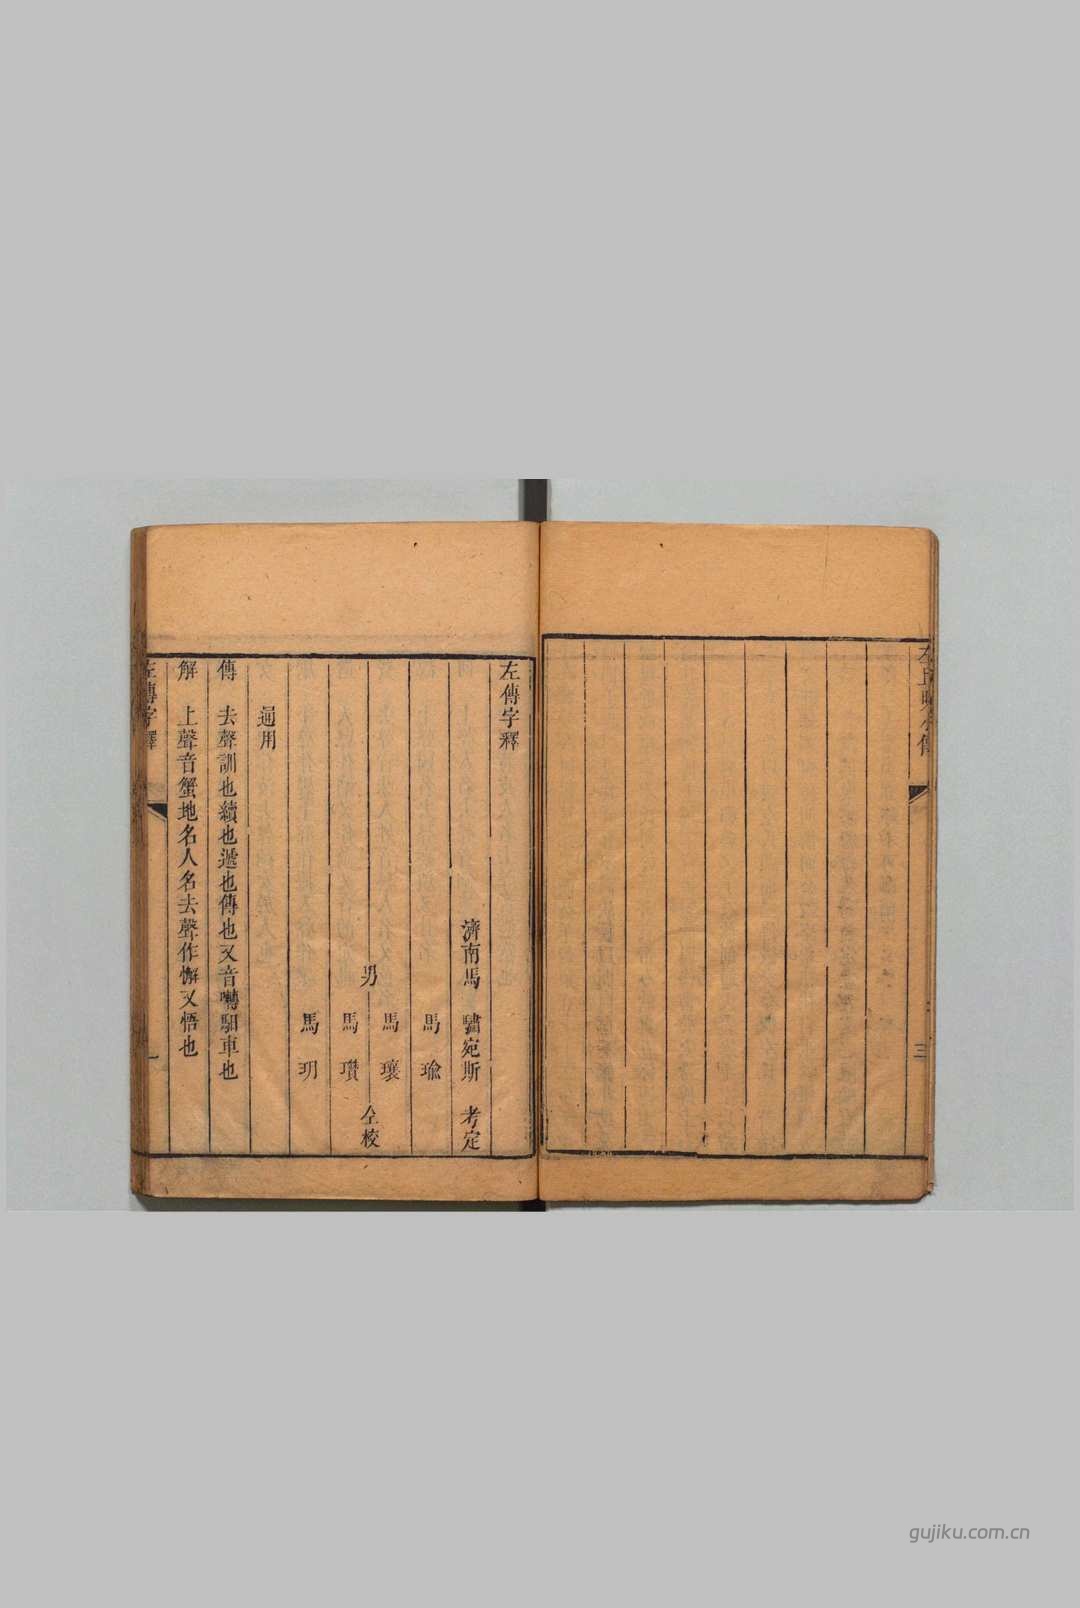 左丘明小傳
三
左傳字釋
濟南馬 驌宛斯 考定
馬 瑜
馬 瓖
男 仝校
馬 瓚
馬 玥
通用
傳 去聲訓也續也遞也傳也又音囀驲車也
解 上聲音蟹地名人名去聲作懈又悟也
左傳字釋
一
gujiku.com.cn